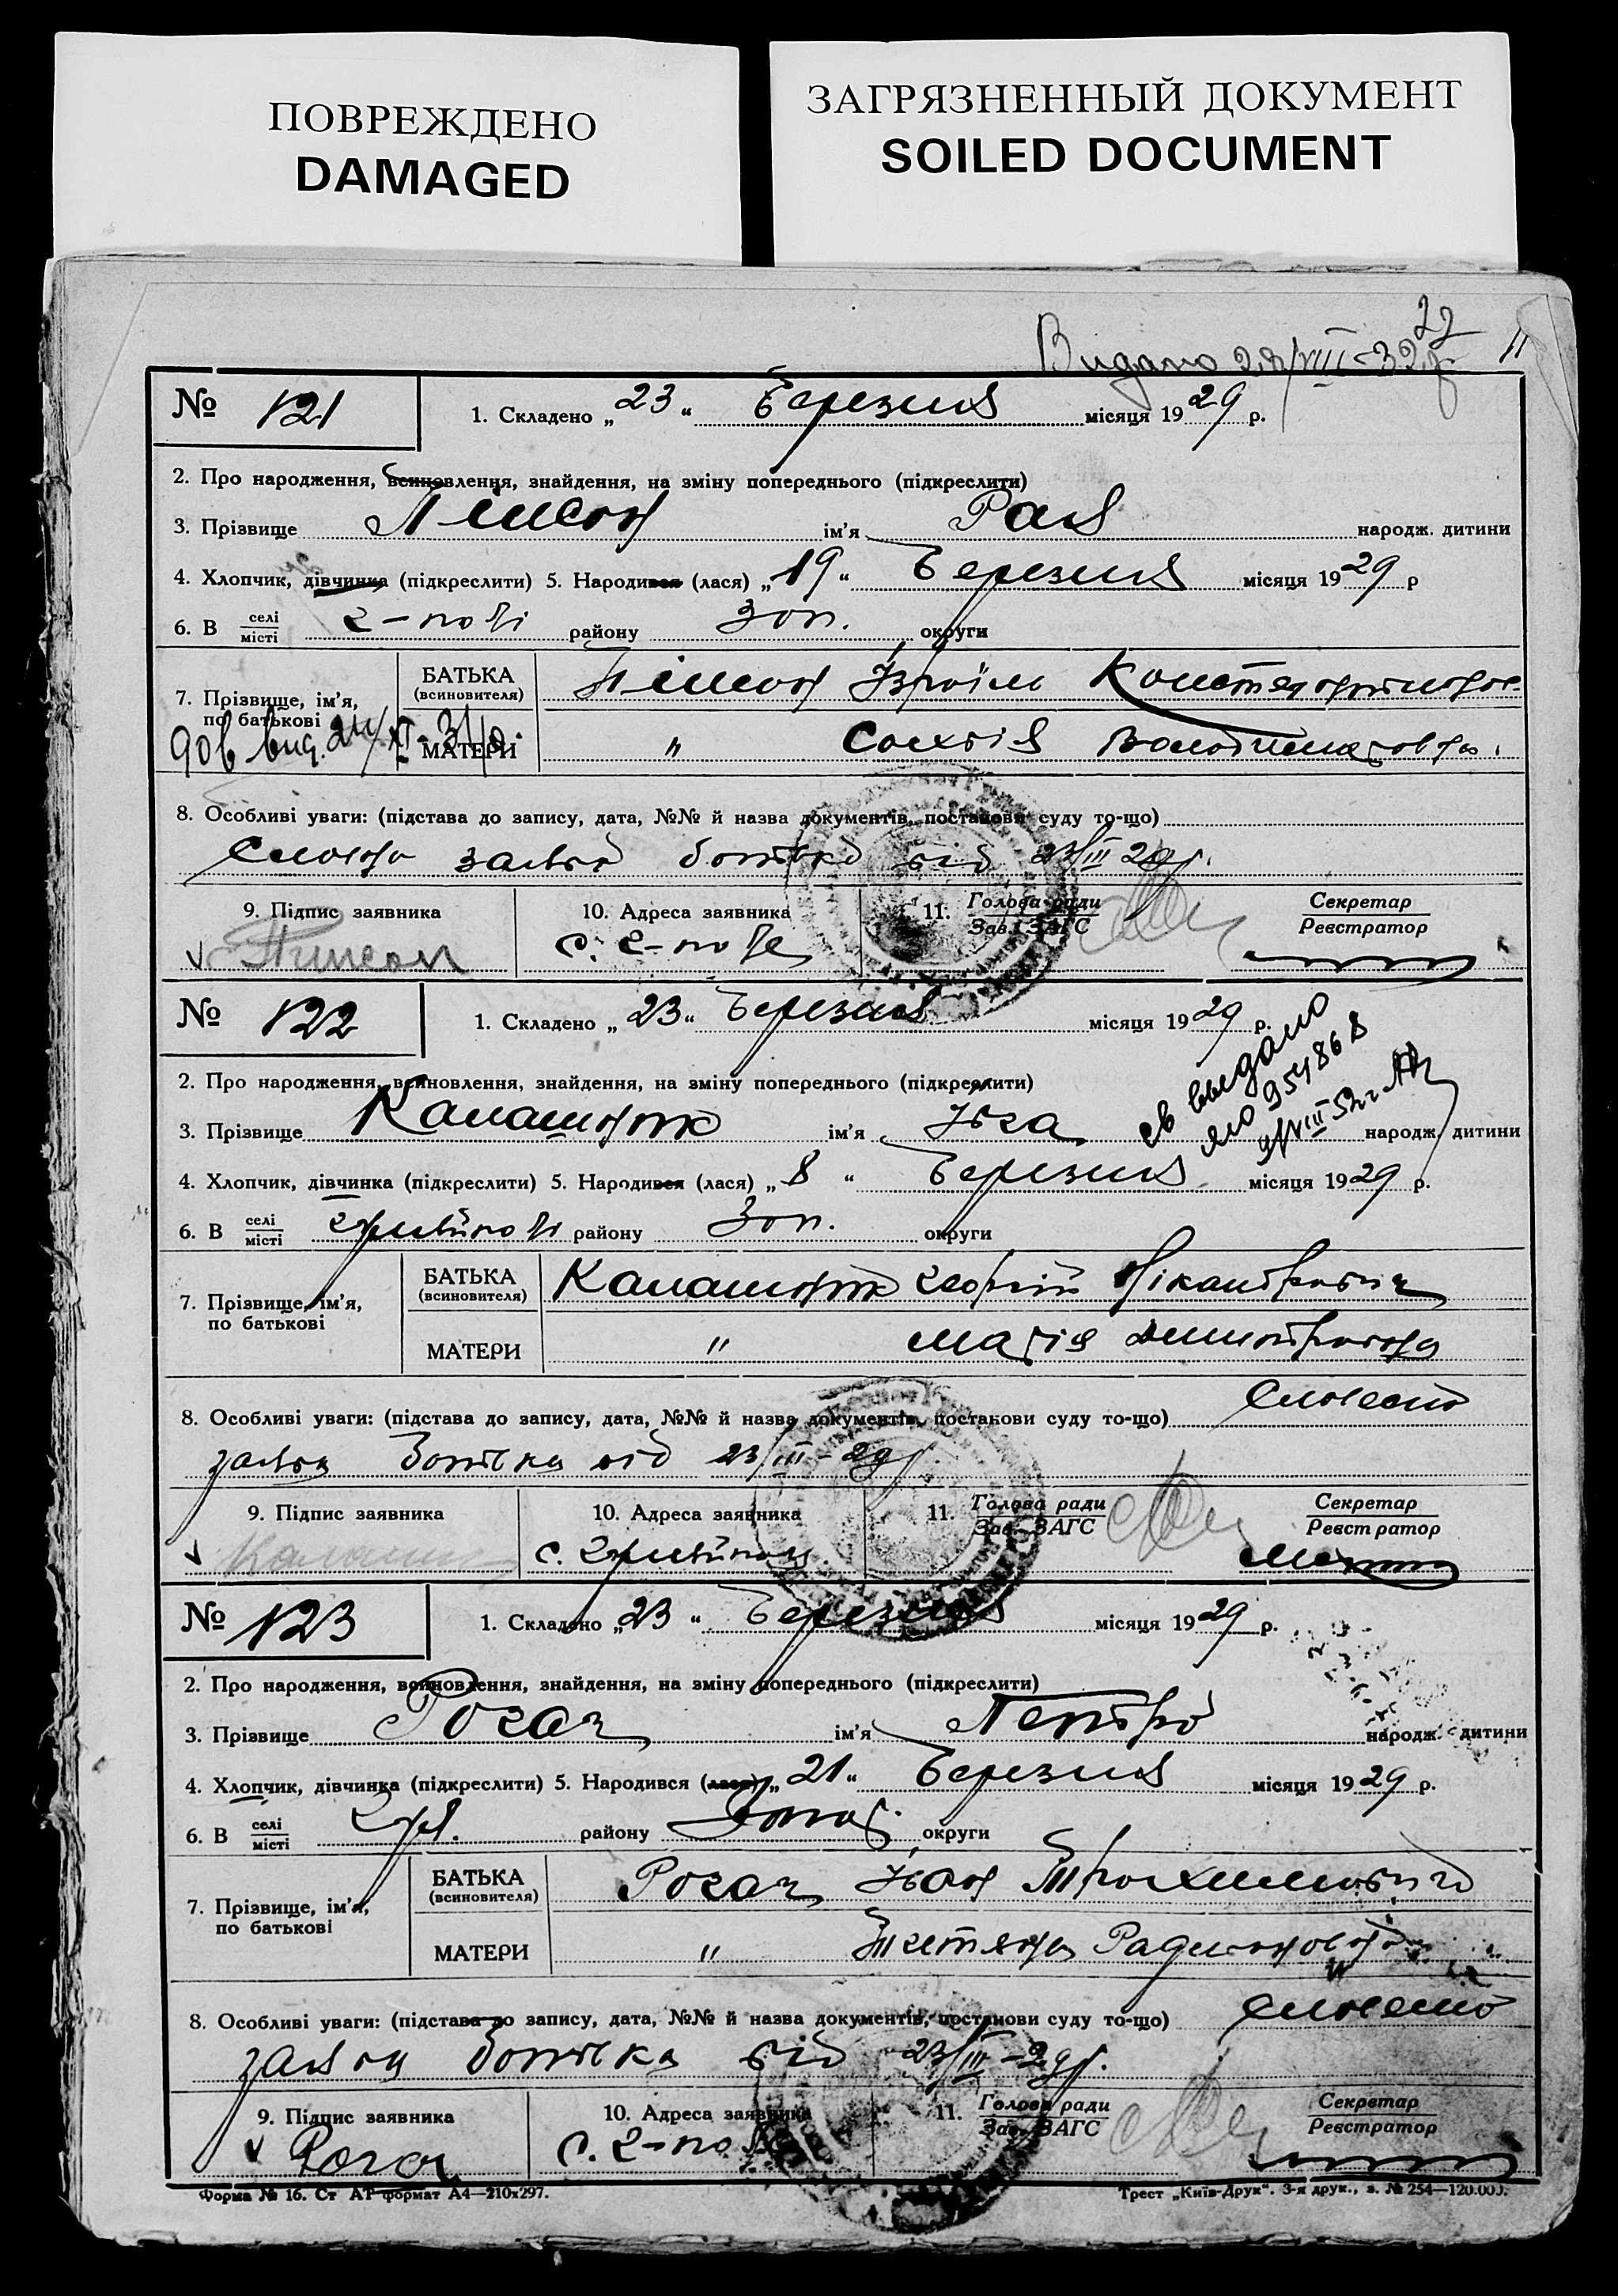 ПОВРЕЖДЕНО
DAMAGED
ЗАГРЯЗНЕННЫЙ ДОКУМЕНТ
SOILED DOCUMENT
22
Видано 22/VIII-32 р
№ 121
1. Складено „23“ Березня місяця 1929 р.
2. Про народження, всиновлення, знайдення, на зміну попереднього (підкреслити)
3. Прізвище Пінсон ім’я Рая народж. дитини
4. Хлопчик, дівчинка (підкреслити) 5. Народився (лася) „19“ Березня місяця 1929 р
6. В селі/місті Г-полі району Зап. округи
7. Прізвище, ім’я, по батькові
БАТЬКА (всиновителя) Пінсон Ізраїль
МАТЕРИ „ Софія
8. Особливі уваги: (підстава до запису, дата, №№ й назва документів, постанови суду то-що)
заява батька від 23/III 29 р.
9. Підпис заявника
10. Адреса заявника
11. Голова ради / Зав. ЗАГС
Секретар / Реєстратор
Пинсон
с. Г-поле
№ 122
1. Складено „23“ Березня місяця 1929 р.
св выдано
ЯЮ 954868
2. Про народження, всиновлення, знайдення, на зміну попереднього (підкреслити)
3. Прізвище Калашнік ім’я Ніса народж. дитини
4. Хлопчик, дівчинка (підкреслити) 5. Народився (лася) „8“ Березня місяця 1929 р.
6. В селі/місті Гуляйполі району Зап. округи
7. Прізвище, ім’я, по батькові
БАТЬКА (всиновителя) Калашнік Георгій Нікандрович
МАТЕРИ „ Марія Дмитровна
8. Особливі уваги: (підстава до запису, дата, №№ й назва документів, постанови суду то-що) Словесна
заява батька від 23/III-29 р.
9. Підпис заявника
10. Адреса заявника
11. Голова ради / Зав. ЗАГС
Секретар / Реєстратор
с. Гуляйполе
№ 123
1. Складено „23“ Березня місяця 1929 р.
2. Про народження, всиновлення, знайдення, на зміну попереднього (підкреслити)
3. Прізвище Рогач ім’я Петро народж. дитини
4. Хлопчик, дівчинка (підкреслити) 5. Народився (лася) „21“ Березня місяця 1929 р.
6. В селі/місті Гул. району Запор. округи
7. Прізвище, ім’я, по батькові
БАТЬКА (всиновителя) Рогач Іван Трохимович
МАТЕРИ „ Тетяна Радионовна
8. Особливі уваги: (підстава до запису, дата, №№ й назва документів, постанови суду то-що) Словесна
заява батька від 23/III-29 р.
9. Підпис заявника
10. Адреса заявника
11. Голова ради / Зав. ЗАГС
Секретар / Реєстратор
Рогач
с. Г-поле
Форма № 16. Ст АТ формат А4—210х297.
Трест „Київ-Друк“. 3-я друк., з. № 254—120.000.